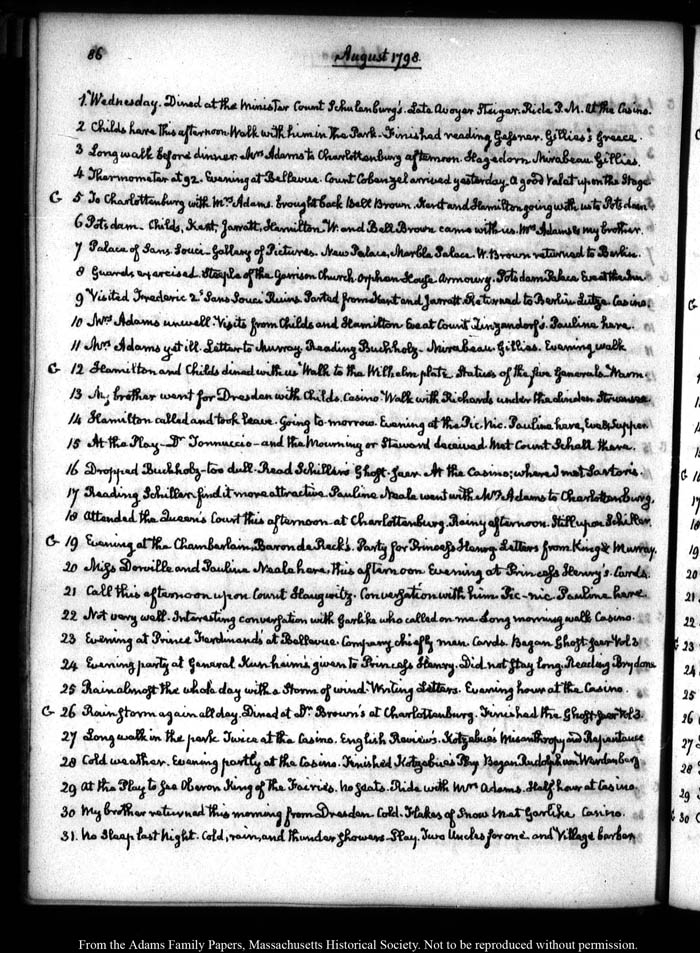 86
August 1798.
1. Wednesday. Dined at the Minister Count Schulenburg's. Late Avoyer Steiger. Ride P.M. At the Casino.
2 Childs here this afternoon. Walk with him in the Park. Finished reading Gessner. Gillies's Greece.
3 Long walk before dinner. Mrs Adams to Charlottenburg afternoon. Hagedorn Mirabeau Gillies.
4 Thermometer at 92. Evening at Bellevue. Count Cobenzel arrived yesterday. A good Valet upon the Stage
G 5 To Charlottenburg with Mrs Adams. brought back Bell Brown. Kent and Hamilton going with us to Potsdam
6 Potsdam. Childs, Kent, Jarratt, Hamilton. W. and Bell Brown came with us. Mrs Adams & my brother.
7 Palace of Sans Souci - Gallery of Pictures. New Palace, Marble Palace. W. Brown returned to Berlin.
8 Guards exercised. Steeple of the Garrison Church. Orphan House Armoury. Potsdam Palace Eve at the Inn
9 Visited Frederic 2's Sans Souci Ruins. Parted from Kent and Jarratt Returned to Berlin Casino.
10 Mrs Adams unwell. Visits from Childs and Hamilton Eve at Count Zinzendorf's. Pauline here.
11 Mrs Adams yet ill. Letter to Murray. Reading Buchholz. Mirabeau. Gillies. Evening walk
G 12 Hamilton and Childs dined with us Walk to the Wilhelm platz. Statues of the five Generals. Warm.
13 My brother went for Dresden with Childs. Casino. Walk with Richards under the linden
14 Hamilton called and took leave. Going to-morrow. Evening at the Pic. Nic. Pauline here,
15 At the Play - Dr Tonnuccio - and the Mourning or Steward deceived. Met Count Schall there.
16 Dropped Buchholz - too dull. Read Schiller's Ghost-Seer. At the Casino; where I met Sartoris.
17 Reading Schiller. find it more attractive. Pauline Neale went with Mrs Adams to Charlottenburg.
18 Attended the Queen's Court this afternoon at Charlottenburg. Rainy afternoon. Still upon Schiller.
G 19 Evening at the Chamberlain, Baron de Reck's. Party for Princess Henry. Letters from King & Murray.
20 Miss Dorville and Pauline Neale here, this afternoon Evening at Princess Henry's. Cards.
21 Call this afternoon upon Count Haugwitz. Conversation with him. Pic-nic. Pauline here
22 Not very well. Interesting conversation with Garlike who called on me. Long morning walk Casino.
23 Evening at Prince Ferdinand's at Bellevue. Company chiefly men Cards. Began Ghost-Seer Vol 3
24 Evening party at General Kunheim's given to Princess Henry. Did not stay long. Reading Brydone
25 Rain almost the whole day with a storm of wind. Writing Letters. Evening hour at the Casino.
G 26 Rain storm again all day. Dined at Dr. Brown's at Charlottenburg. Finished the Ghost-Seer Vol 3.
27 Long walk in the park Twice at the Casino. English Reviews. Kotzebue's Misanthropy and Repentance
28 Cold weather. Evening partly at the Casino. Finished Kotzebue's Play Began Rudolph von Werdenberg
29 At the Play to see Oberon King of the Fairies. No seats. Ride with Mrs Adams. Half hour at Casino.
30 My brother returned this morning from Dresden Cold. Flakes of Snow Met Garlike Casino.
31. No sleep last night. Cold, rain, and thunder showers. Play. Two Uncles for one and Village barber
From the Adams Family Papers, Massachusetts Historical Society. Not to be reproduced without permission.